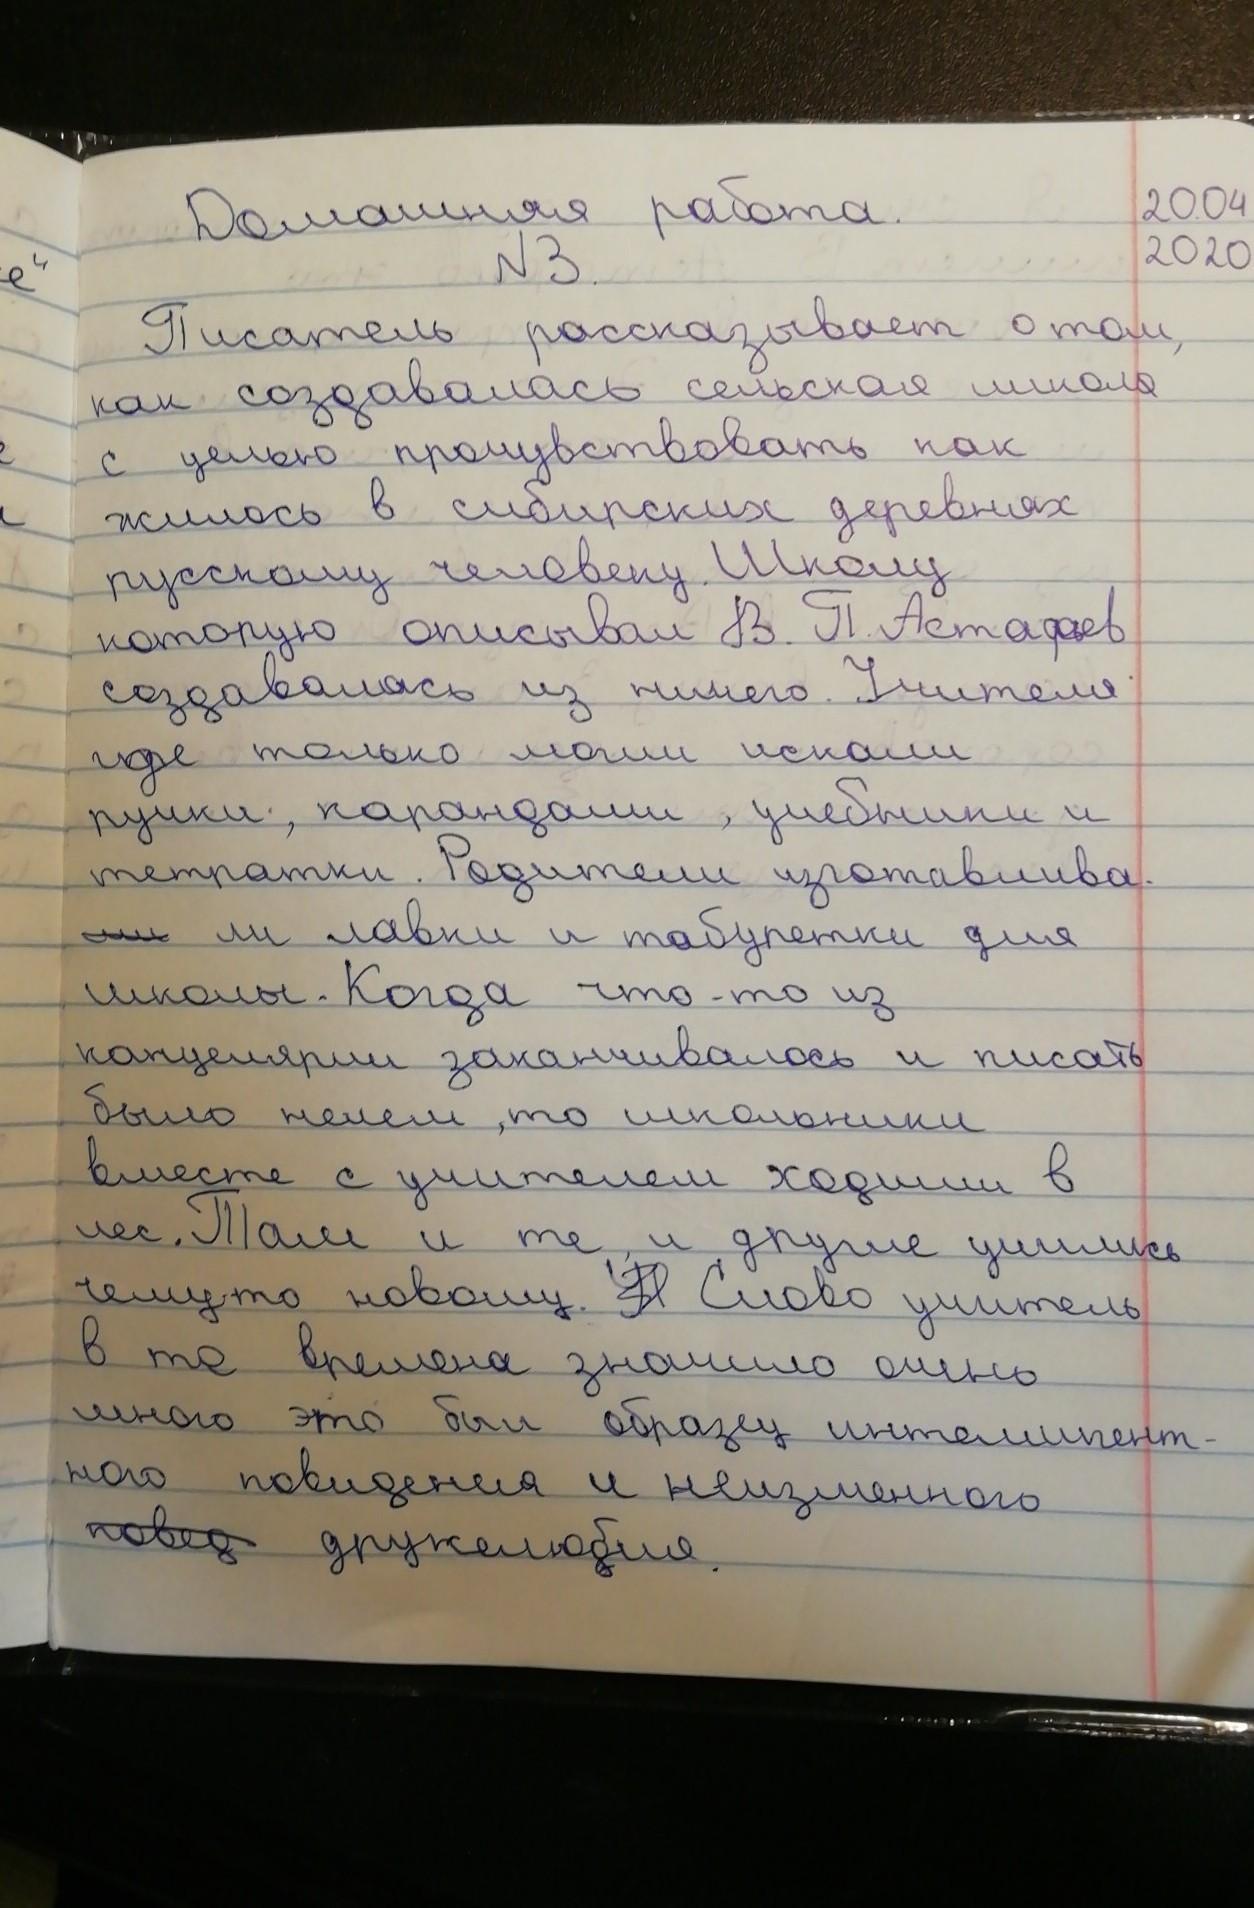 Домашняя работа. 20.04
2020
N3.
е"
Писатель рассказывает о том,
как создавалась сельская школа
с целью прочувствовать как
жилось в сибирских деревнях
русскому человеку. Школу
которую описывал В. П. Астафьев
создавалась из ничего. Учителя
где только могли искали
ручки, карандаши, учебники и
тетратки. Родители изготавлива-
ли лавки и табуретки для
школы. Когда что-то из
канцелярии заканчивалось и писать
было нечем, то школьники
вместе с учителем ходили в
лес. Там и те, и другие учились
чемуто новому. Слово учитель
в те времена значило очень
много это был образец интеллигент-
ного повидения и неизменного
повед дружелюбия.